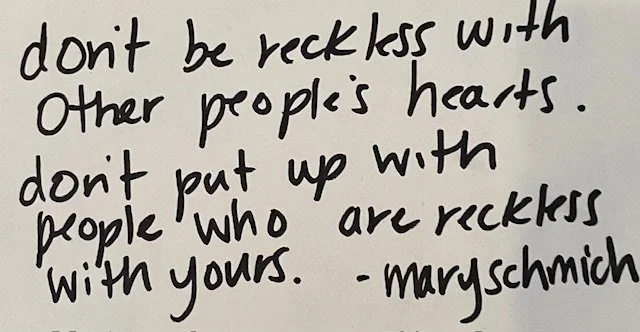 don't be reckless with
other people's hearts.
don't put up with
people who are reckless
with yours. - mary schmich